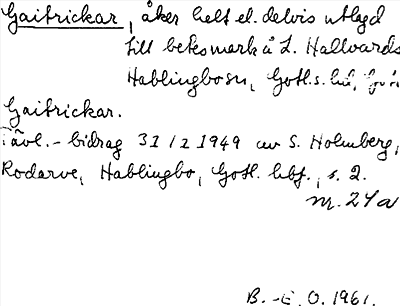 Gaitrickar, åker helt el. delvis utlagd
till betesmark å L. Hallvards
Hablingbo sn, Gotl. s. hd,
Gaitrickar.
Tävl.-bidrag 31/12 1949 av S. Holmberg,
Rodarve, Hablingbo, Gotl. hbf., s. 2.
m. 24a
B.-E. O. 1961.